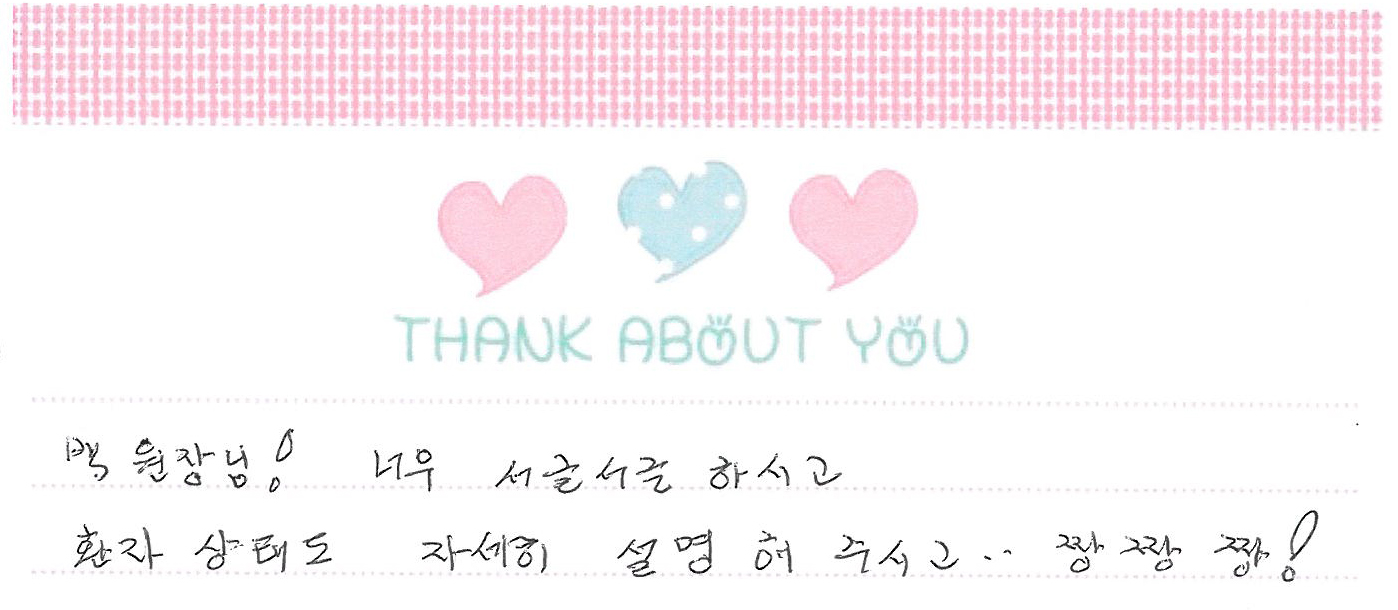 THANK ABOUT YOU
백 원장님! 너무 서글서글 하시고
환자 상태도 자세히 설명 해 주시고.. 짱 짱 짱!